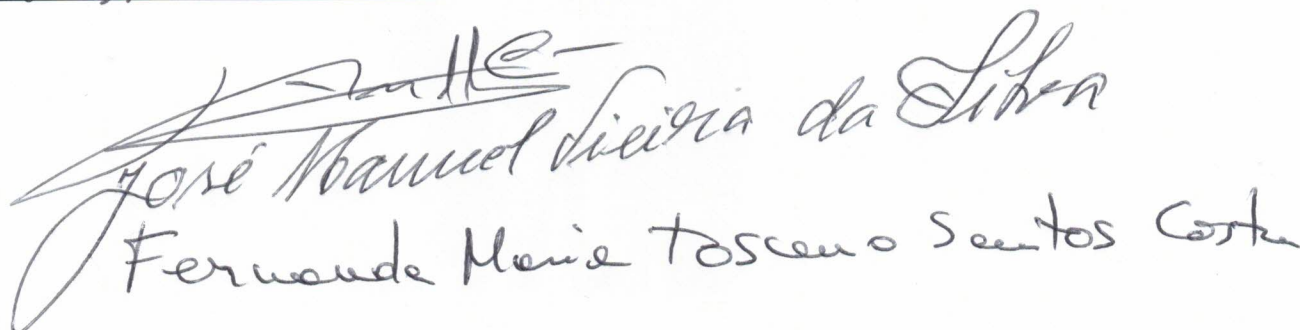 José Manuel Vieira da Silva
Fernanda Maria Toscano Santos Costa